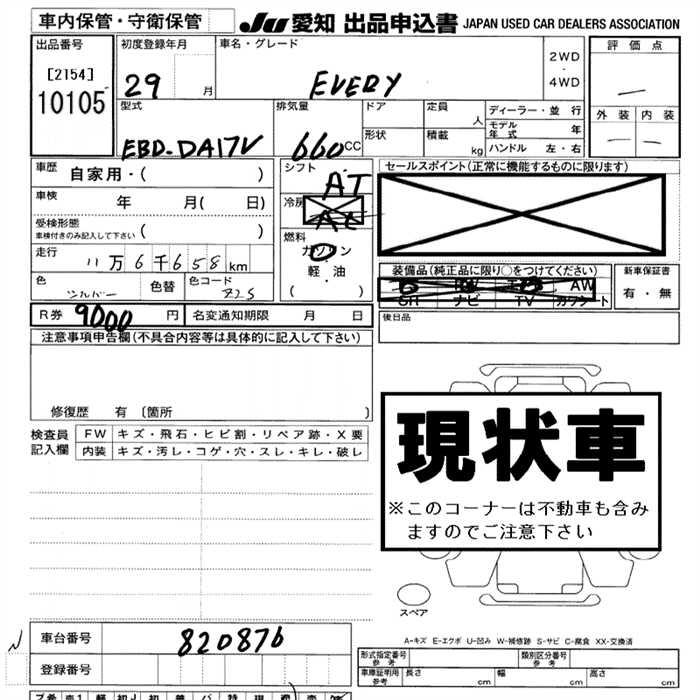 車内保管・守衛保管
JU 愛知 出品申込書 JAPAN USED CAR DEALERS ASSOCIATION
出品番号
[2154]
10105
初度登録年月
29 月
車名・グレード
EVERY
2WD
・
4WD
評価点
—
外装 内装
— —
型式
EBD-DA17V
排気量
660 CC
ドア
形状
定員
人
積載
kg
ディーラー・並行
モデル年式 年
ハンドル 左・右
車歴
自家用・( )
車検
年 月( 日)
受検形態
車検付きのみ記入して下さい ( )
走行
11万6千658km
色
シルバー
色替
色コード
Z2S
シフト
AT
冷房
AC
燃料
ガソリン
・
軽・油
( )
セールスポイント(正常に機能するものに限ります)
装備品(純正品に限り○をつけてください)
AW
SR ナビ TV カワシート
新車保証書
有・無
R券 9000 円
名変通知期限 月 日
後日品
注意事項申告欄(不具合内容等は具体的に記入して下さい)
修復歴 有 [箇所 ]
検査員
記入欄
FW キズ・飛石・ヒビ割・リペア跡・X要
内装 キズ・汚レ・コゲ・穴・スレ・キレ・破レ
現状車
※このコーナーは不動車も含み
ますのでご注意下さい
スペア
A-キズ E-エクボ U-凹み W-補修跡 S-サビ C-腐食 XX-交換済
車台番号
820876
登録番号
形式指定番号
参考
類別区分番号
参考
車庫証明用
参考
長さ cm
幅 cm
高さ cm